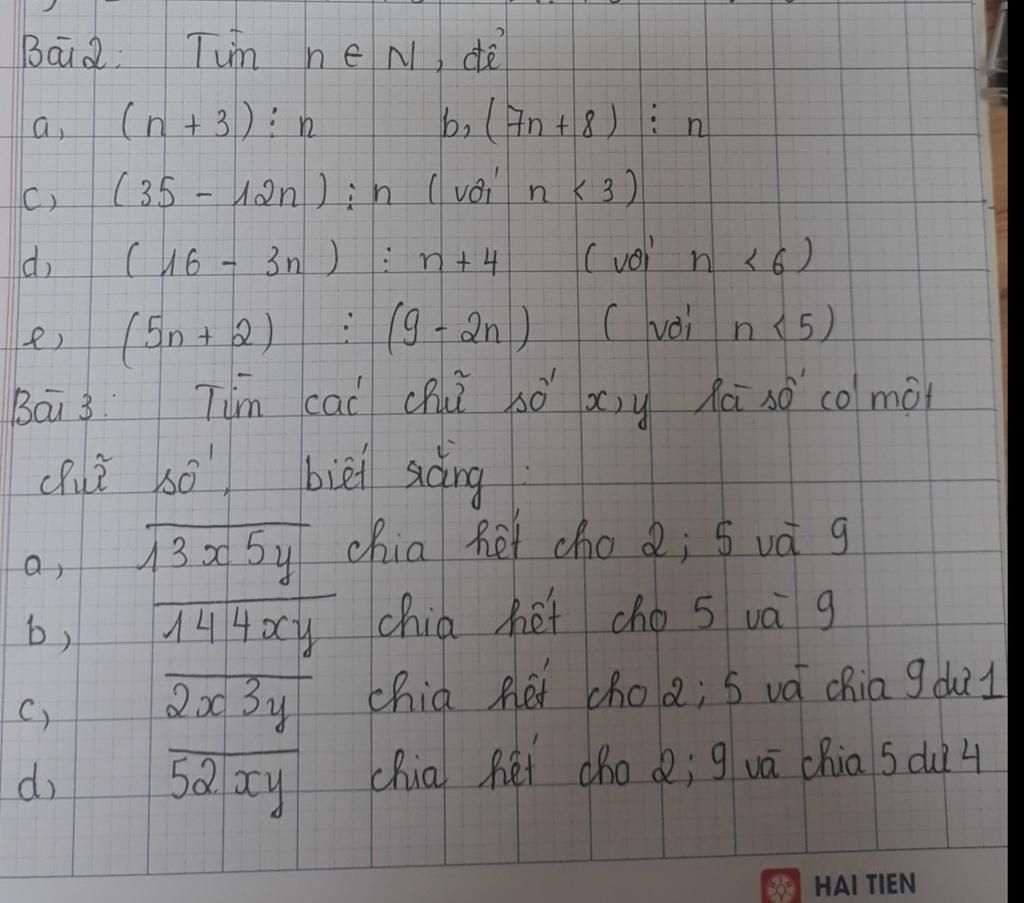 Bài 2: Tìm n ∈ N, để
a, (n + 3) ⋮ n b, (7n + 8) ⋮ n
c, (35 - 12n) ⋮ n (với n < 3)
d, (16 - 3n) ⋮ n + 4 (với n < 6)
e, (5n + 2) ⋮ (9 - 2n) (với n < 5)
Bài 3: Tìm các chữ số x, y là số có một
chữ số, biết rằng:
a, 1̅3̅x̅5̅y̅ chia hết cho 2; 5 và 9
b, 1̅4̅4̅x̅y̅ chia hết cho 5 và 9
c, 2̅x̅3̅y̅ chia hết cho 2; 5 và chia 9 dư 1
d, 5̅2̅x̅y̅ chia hết cho 2; 9 và chia 5 dư 4
HAI TIEN